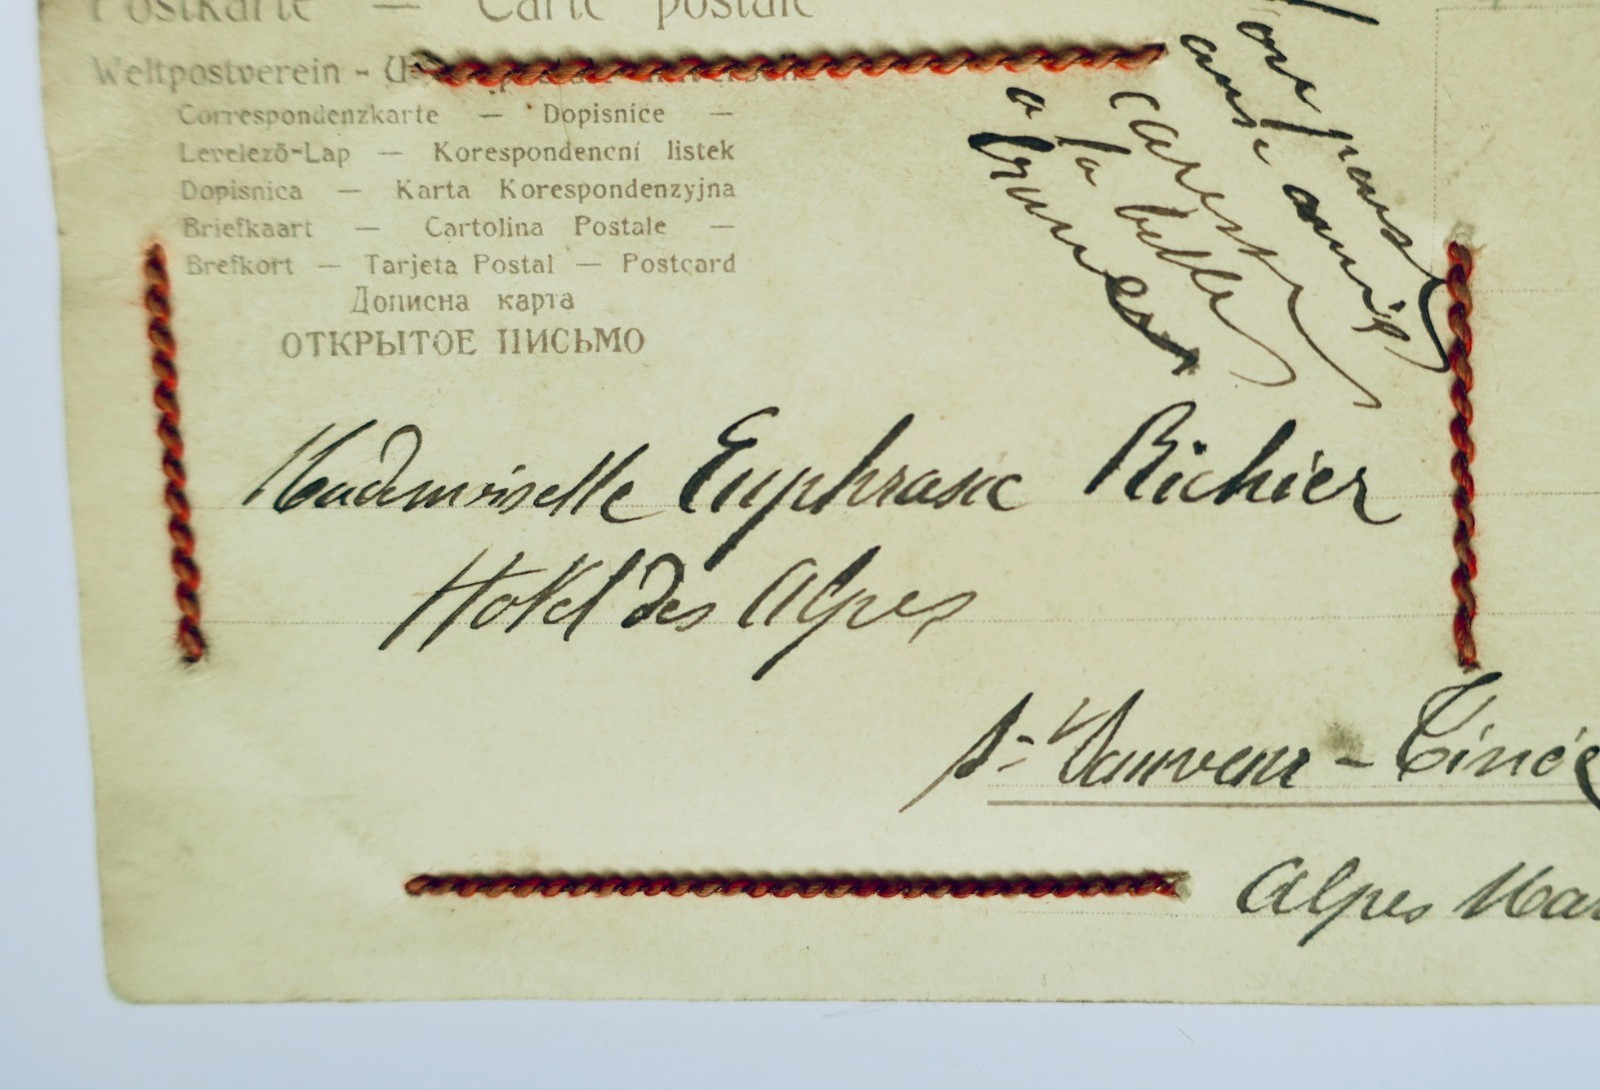 Postkarte — Carte postale
Weltpostverein - U
Correspondenzkarte — Dopisnice —
Levelező-Lap — Korespondencní listek
Dopisnica — Karta Korespondenzyjna
Briefkaart — Cartolina Postale —
Brefkort — Tarjeta Postal — Postcard
Дописна карта
ОТКРЫТОЕ ПИСЬМО
amie
caresse
a la belle
Mademoiselle Euphrasie Richier
Hotel des Alpes
St Sauveur - Tinée
Alpes Mar